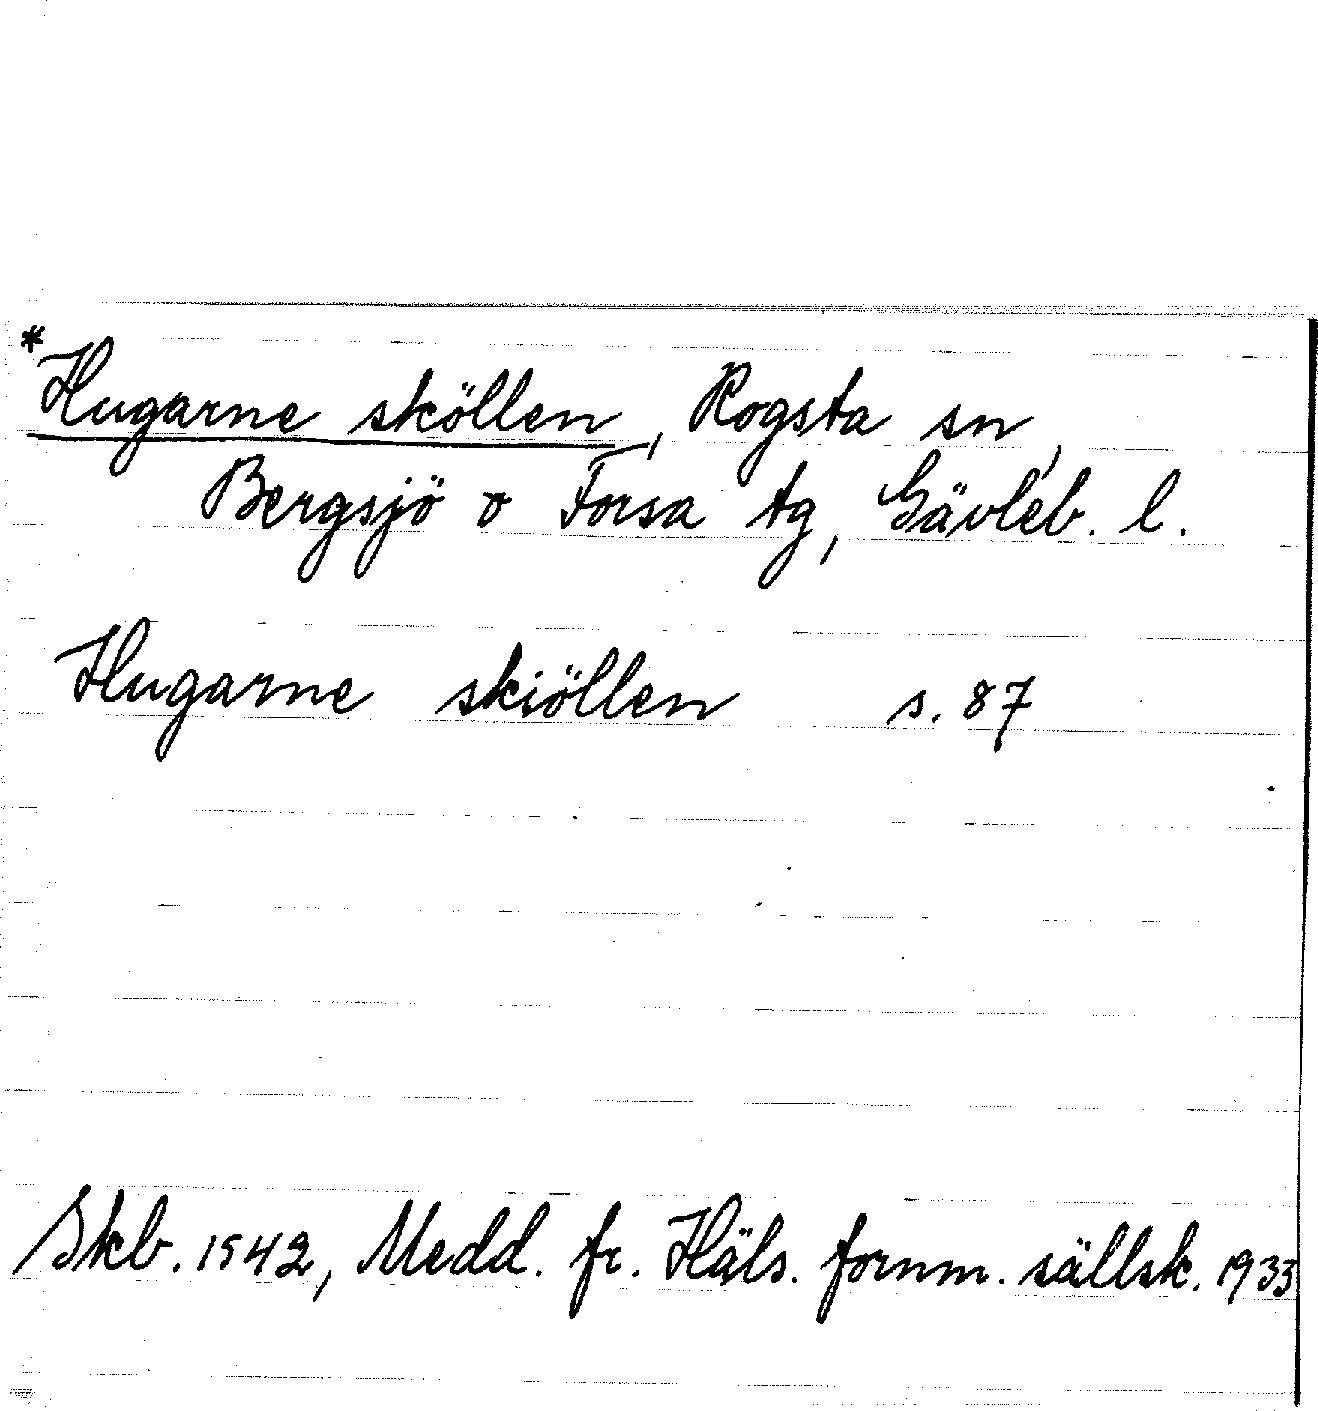 *Hugarne sköllen, Rogsta sn,
Bergsjö o Forsa tg, Gävleb. l.
Hugarne skiöllen s. 87
Skb. 1542, Medd. fr. Häls. fornm. sällsk. 1933